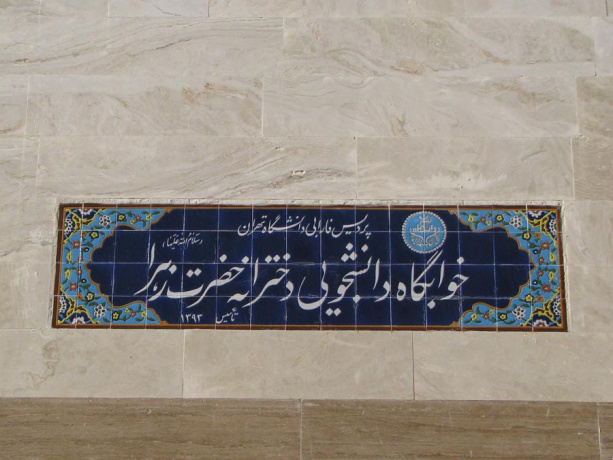 پردیس فارابی دانشگاه تهران
خوابگاه دانشجویی دخترانه حضرت زهرا سلام الله علیها
تأسیس ۱۳۹۳